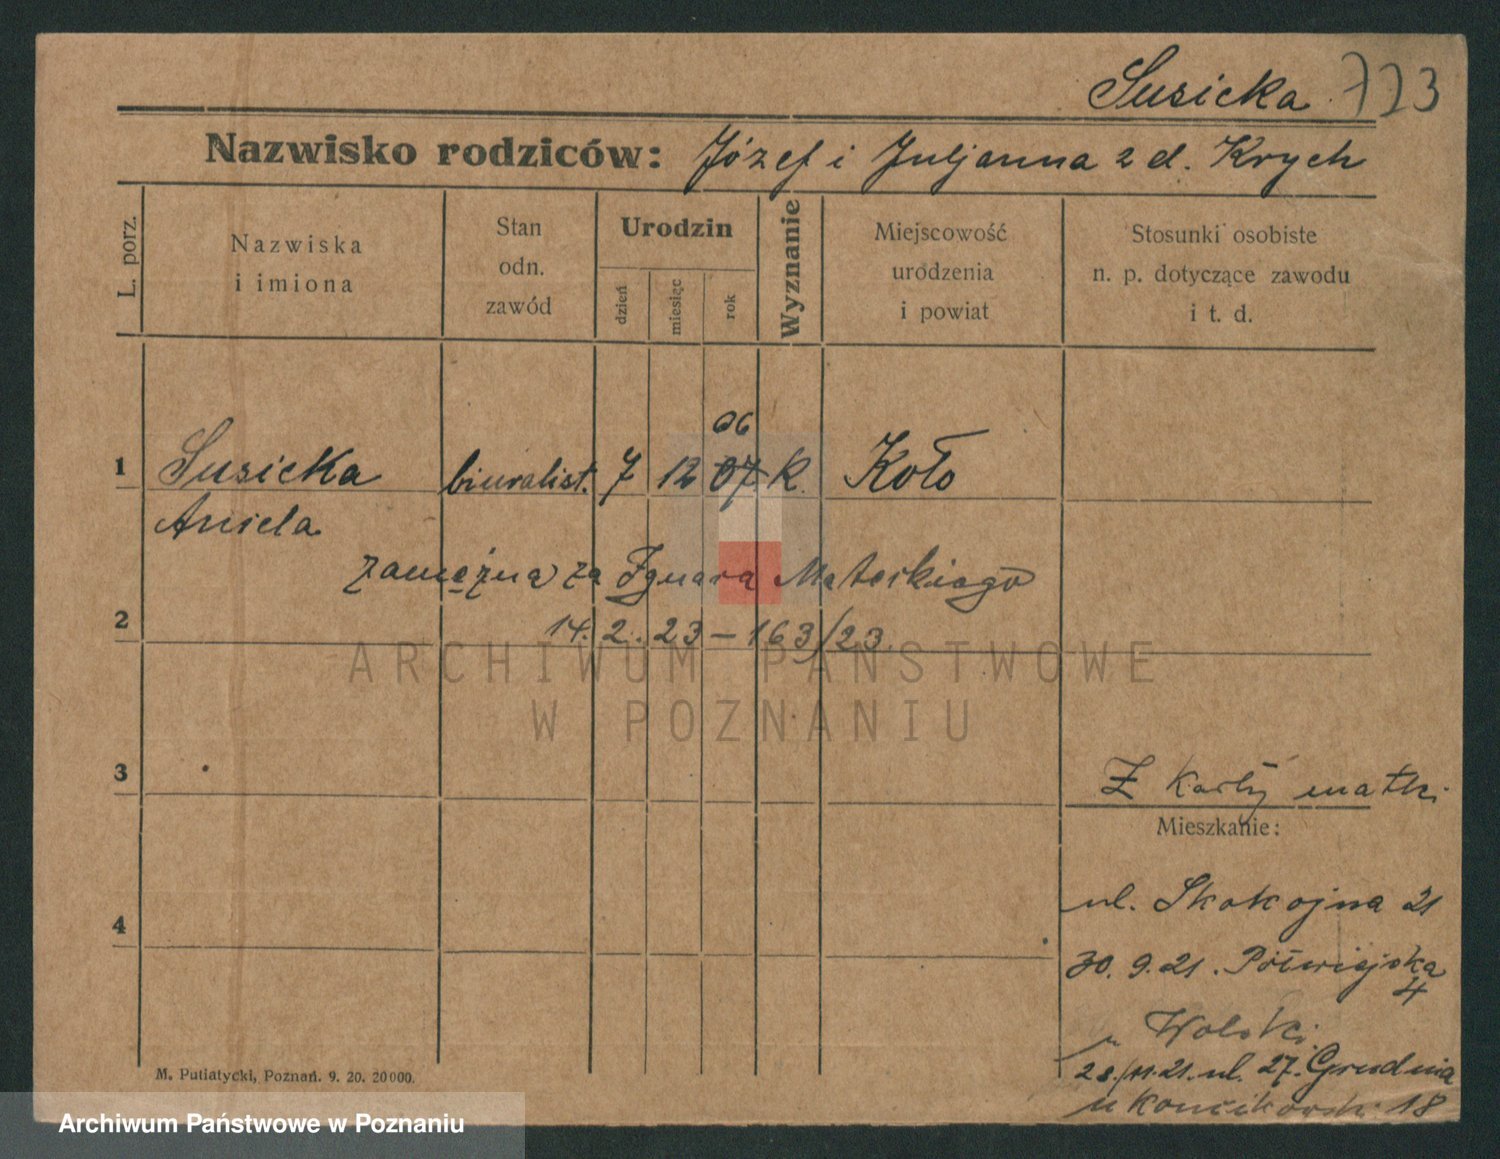 Susicka 723
Nazwisko rodziców: Józef i Juljanna z d. Krych
L. porz.
Nazwiska
i imiona
Stan
odn.
zawód
Urodzin
dzień
miesiąc
rok
Wyznanie
Miejscowość
urodzenia
i powiat
Stosunki osobiste
n. p. dotyczące zawodu
i t. d.
06
1 Susicka biuralist. 7 12 07 k. Koło
Aniela
zamężna za Ignaca Materkiego
2 14. 2. 23 – 163/23.
ARCHIWUM PAŃSTWOWE
W POZNANIU
3 Z karty matki
Mieszkanie:
ul. 21
4
30. 9. 21. Półwiejska
4
u Wolski
28/11.21. ul. 27. Grudnia
u 18
M. Putiatycki, Poznań. 9. 20. 20000.
Archiwum Państwowe w Poznaniu